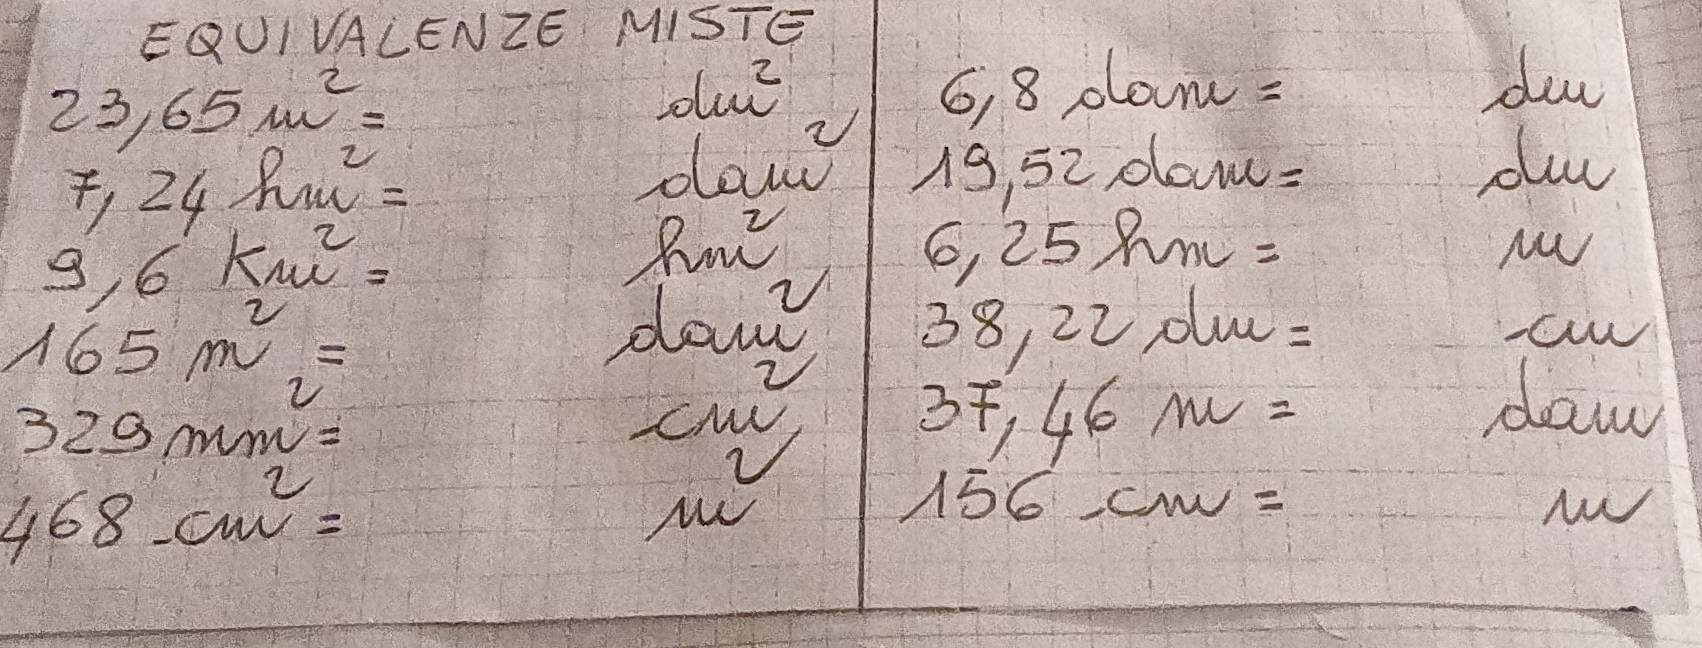 EQUIVALENZE MISTE
23,65 m² = dm²
7,24 hm² = dam²
9,6 Km² = hm²
165 m² = dam²
329 mm² = cm²
468 cm² = m²
6,8 dam = dm
19,52 dam = dm
6,25 hm = m
38,22 dm = cm
37,46 m = dam
156 cm = m